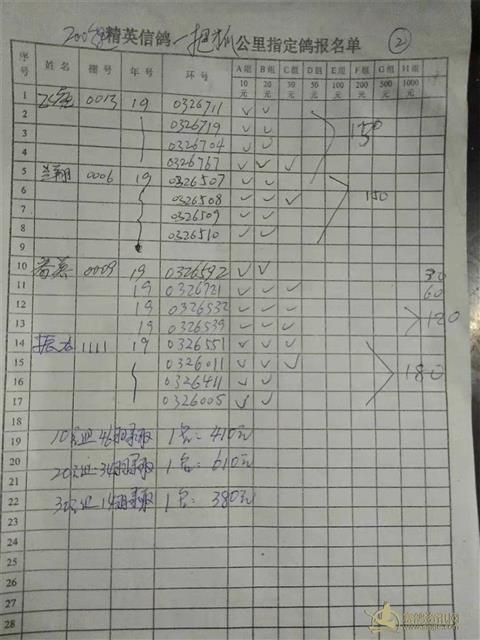 2006年精英信鸽一把抓公里指定鸽报名单 ②
序号 姓名 棚号 年号 环号 A组10元 B组20元 C组30元 D组50元 E组100元 F组200元 G组500元 H组1000元
1 0013 19 0326711 ✓ ✓
2 0326719 ✓ ✓ 150
3 0326704 ✓ ✓
4 0326767 ✓ ✓ ✓
5 兰翔 0006 19 0326507 ✓ ✓
6 0326508 ✓ ✓ ✓ 150
7 0326509 ✓ ✓
8 0326510 ✓ ✓
9
10 0009 19 0326592 ✓ ✓ 30
11 19 0326721 ✓ ✓ ✓ 60
12 19 0326532 ✓ ✓ ✓
13 19 0326539 ✓ ✓ ✓ 120
14 1111 19 0326551 ✓ ✓ ✓
15 0326011 ✓ ✓ ✓ 180
16 0326411 ✓ ✓
17 0326005 ✓ ✓
18
19 10元组46羽 1名:410元
20 20元组34羽 1名:610元
21
22 30元组14羽 1名:380元
23
24
25
26
27
28